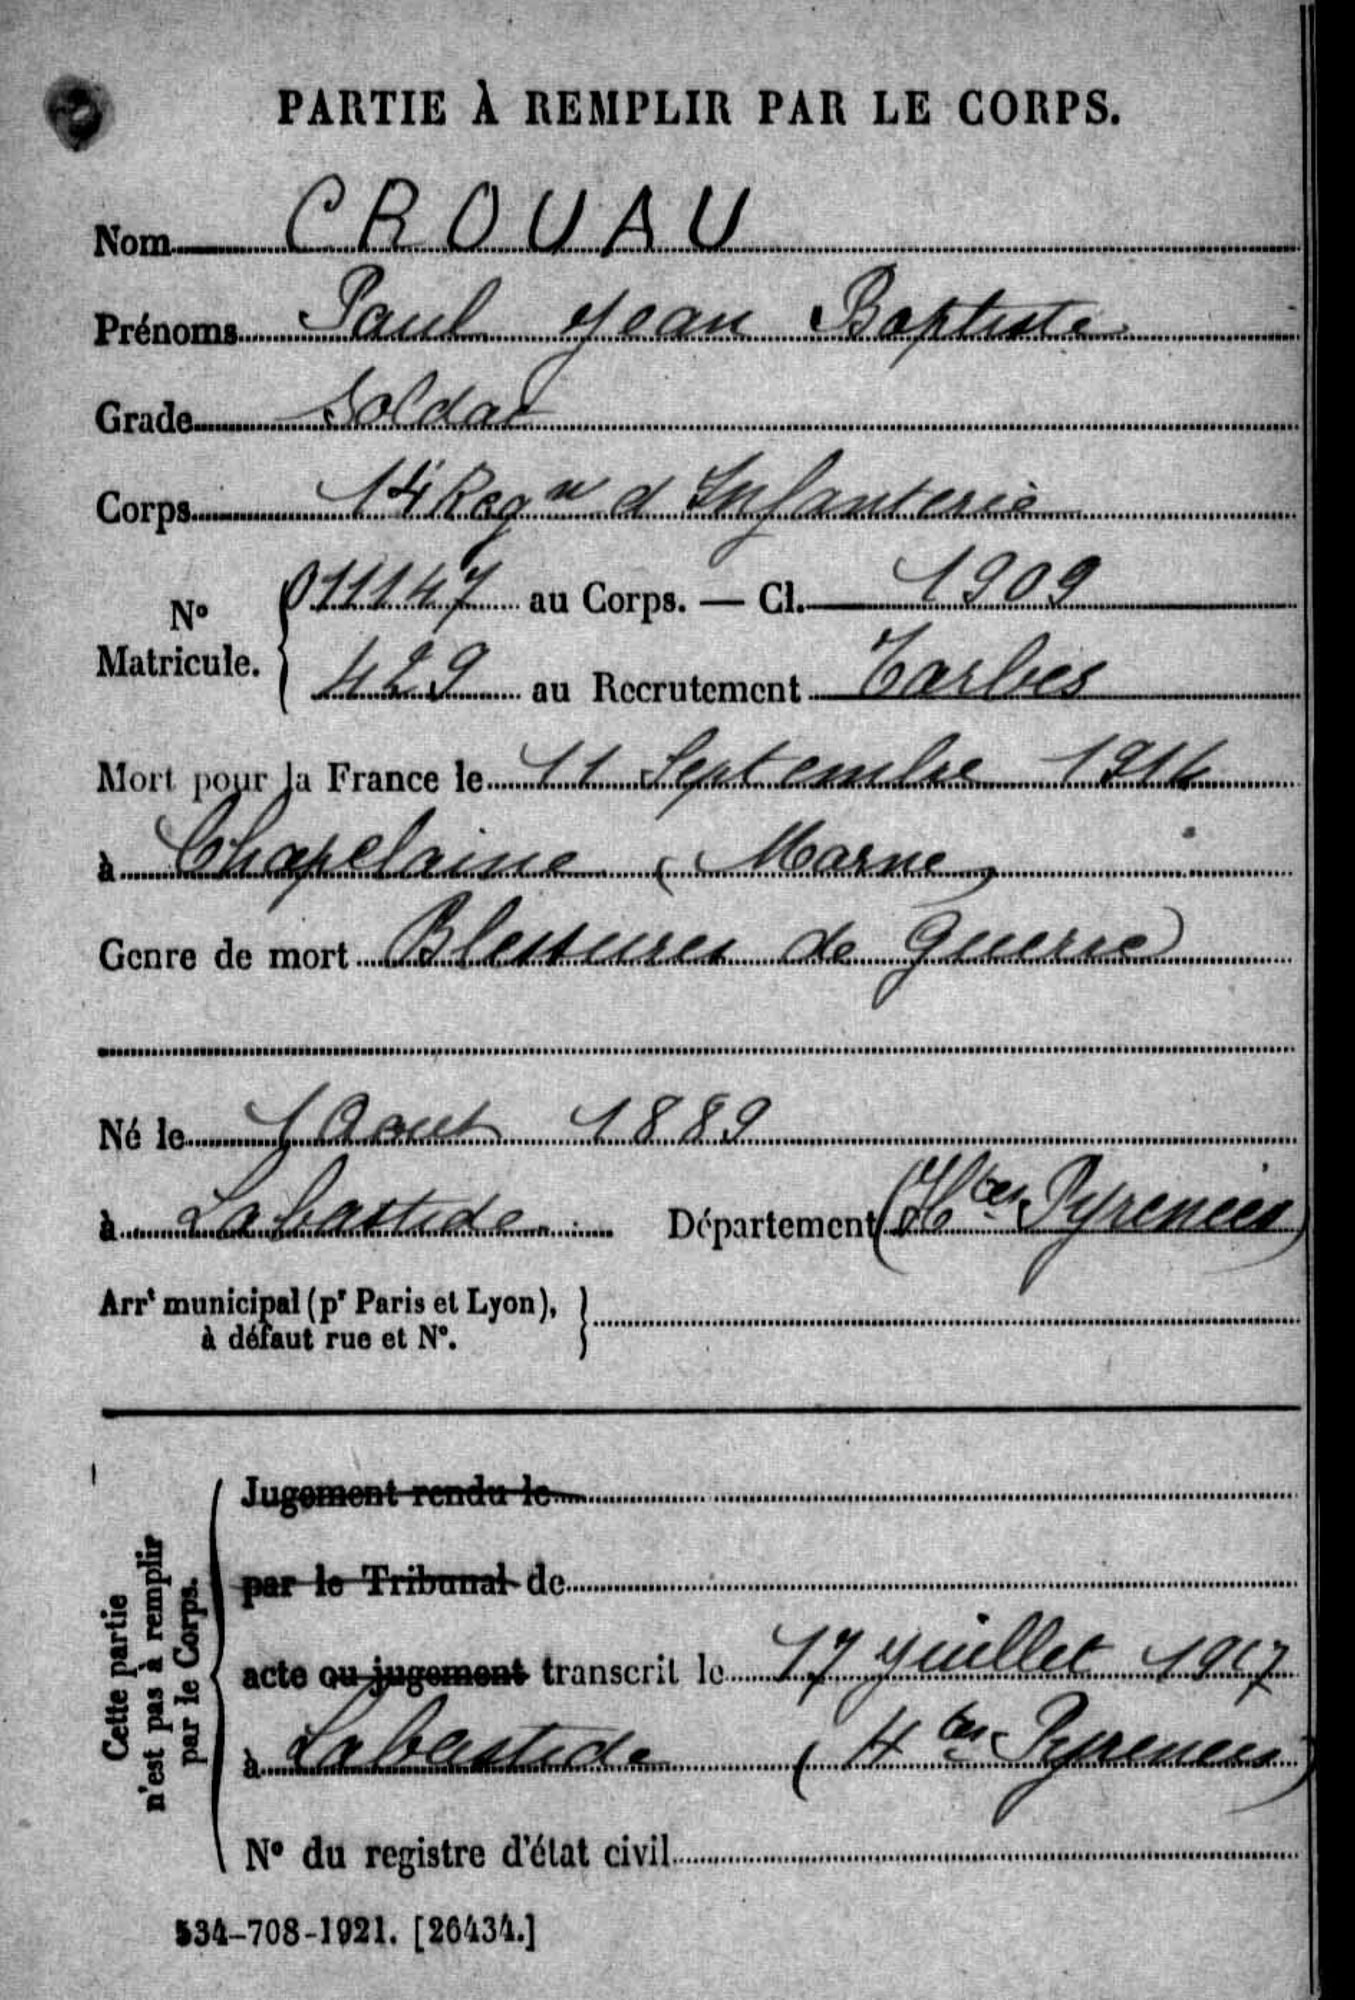 PARTIE À REMPLIR PAR LE CORPS.
Nom CROUAU
Prénoms Paul Jean Baptiste
Grade Soldat
Corps 14 Regᵗ d Infanterie
Nº Matricule. { 011147 au Corps. — Cl. 1909
429 au Recrutement Tarbes
Mort pour la France le 11 Septembre 1914
à Chapelaine (Marne)
Genre de mort Blessures de Guerre
Né le 1 Aout 1889
à Labastide Département (Htes Pyrenees)
Arrt municipal (pr Paris et Lyon), à défaut rue et Nº. }
Cette partie n'est pas à remplir par le Corps.
Jugement rendu le
par le Tribunal de
acte ou jugement transcrit le 17 juillet 1917
à Labastide (Htes Pyrenees)
Nº du registre d'état civil
534-708-1921. [26434.]